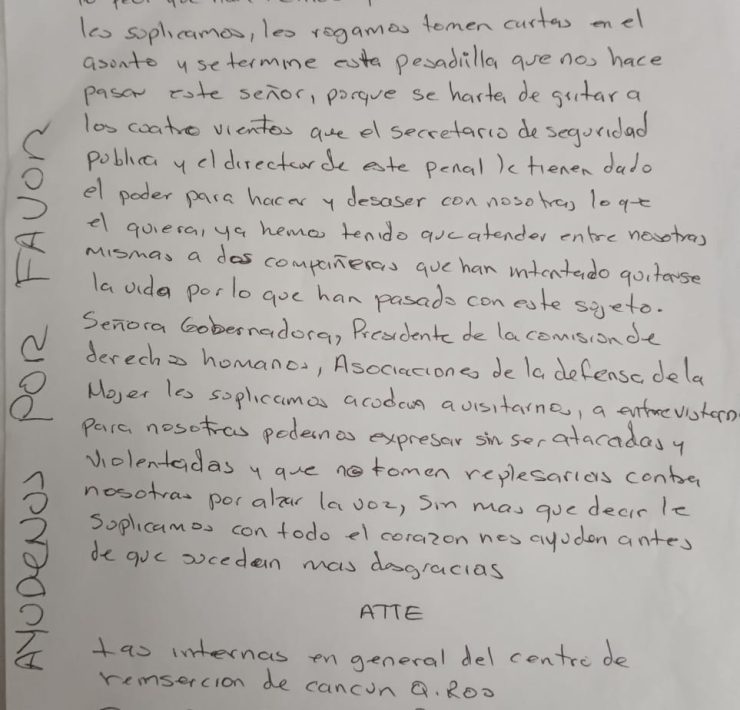 lo peor que han
les suplicamos, les rogamos tomen cartas en el
asonto y se termine esta pesadilla que nos hace
pasar este señor, porque se harta de gritar a
los cuatro vientos que el secretario de seguridad
publica y el director de este penal le tienen dado
el poder para hacer y desaser con nosotras lo que
el quiera, ya hemos tenido que atender entre nosotras
mismas a dos compañeras que han intentado quitarse
la vida por lo que han pasado con este sujeto.
Señora Gobernadora, Presidente de la comision de
derechos humanos, Asociaciones de la defensa de la
Mujer les suplicamos acudan a visitarnos, a entrevistarn
para nosotras podernos expresar sin ser atacadas y
violentadas y que no tomen replesarias contra
nosotras por alzar la voz, Sin mas que decir le
Suplicamos con todo el corazon nos ayuden antes
de que sucedan mas desgracias
ATTE
Las internas en general del centro de
reinsercion de cancun Q. Roo
AYUDENOS POR FAVOR